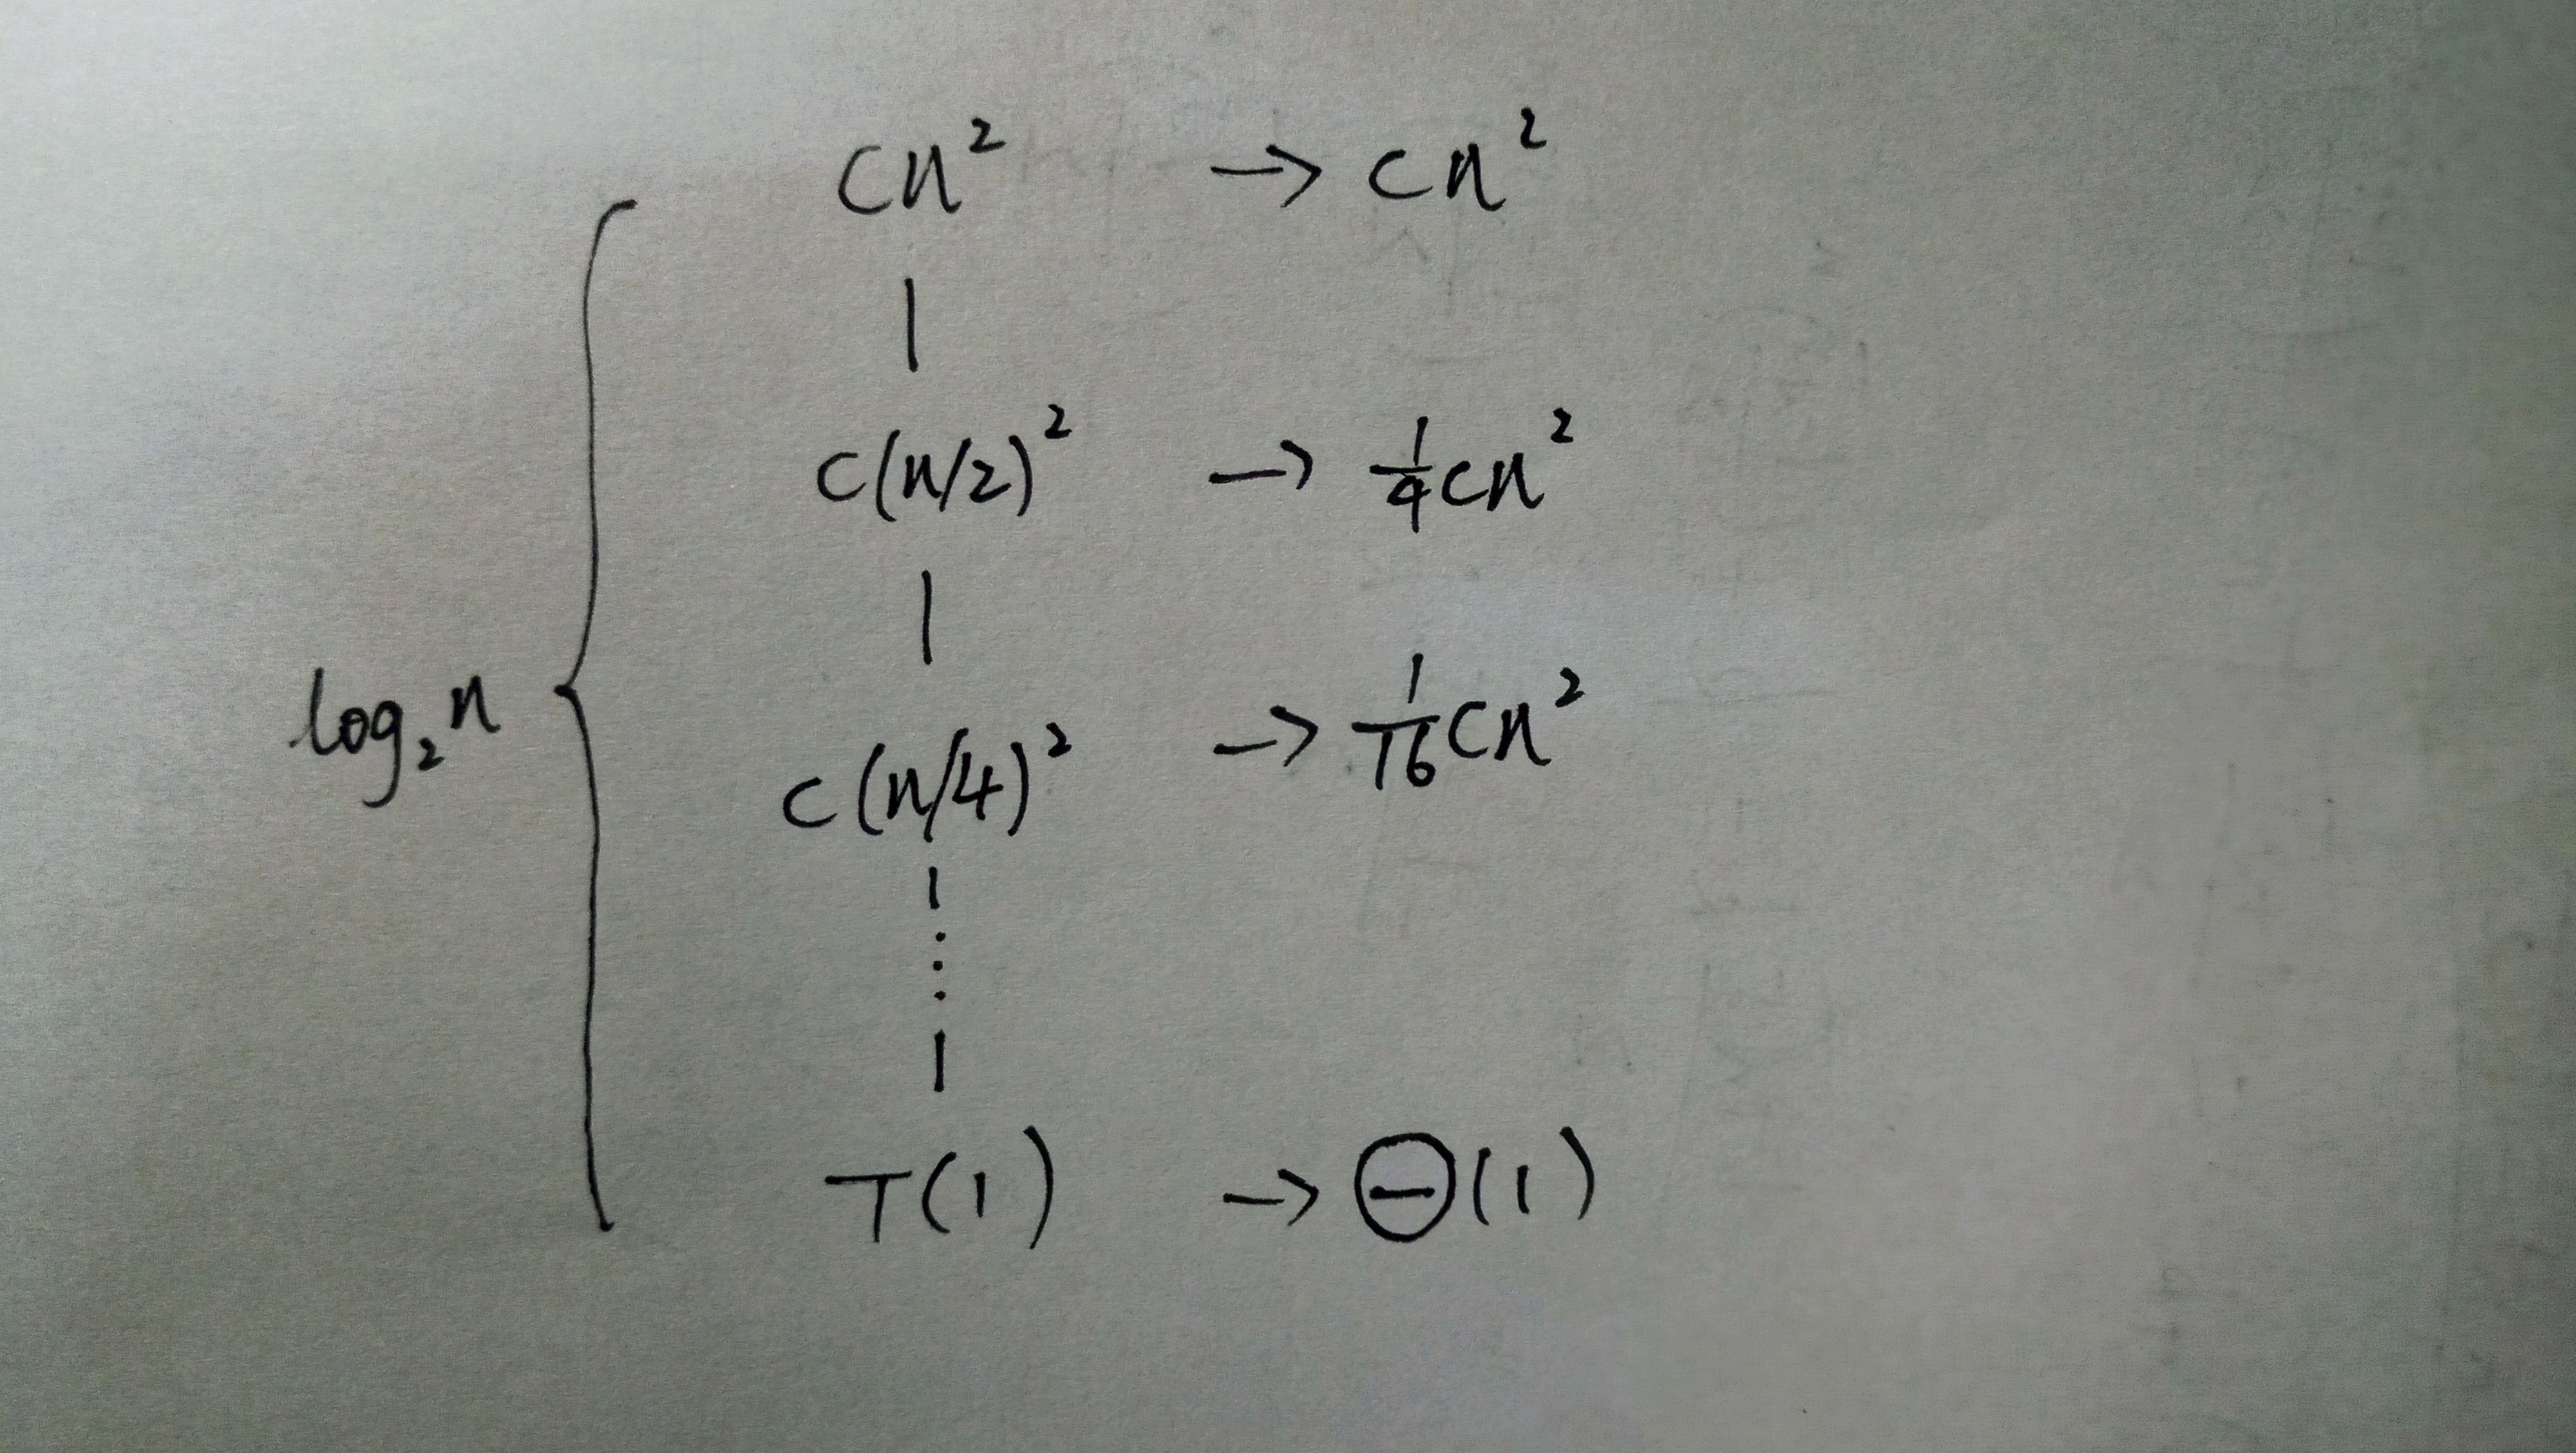 cn² → cn²
c(n/2)² → 1/4 cn²
log₂n
c(n/4)² → 1/16 cn²
⋮
T(1) → Θ(1)